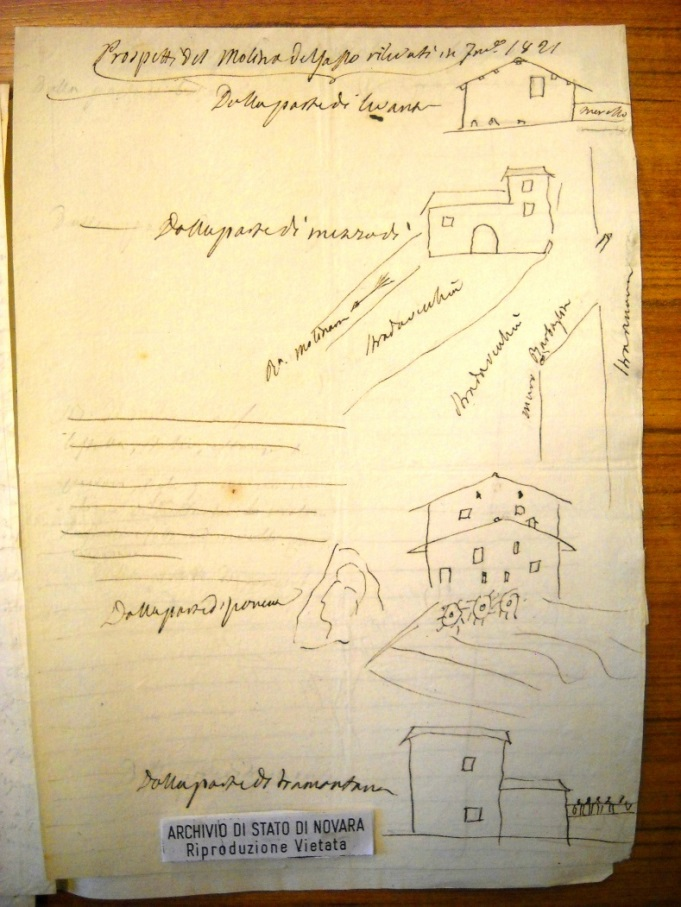 Prospetti del Molino del Sasso rilevati in 1821
Dalla parte di levana
Dalla parte di mezzodì
Ra. Molinara
Stradavecchia
Stradavecchia
muro
Stradanuova
Dalla parte di ponente
Dalla parte di tramontana
ARCHIVIO DI STATO DI NOVARA
Riproduzione Vietata